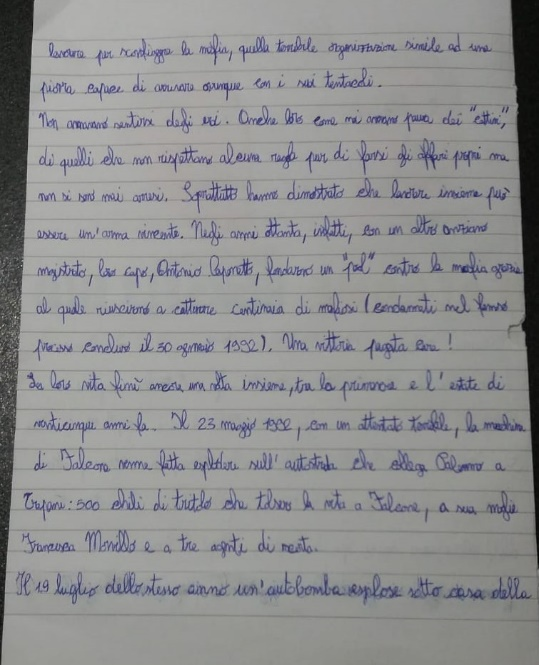 lavorare per sconfiggere la mafia, quella terribile organizzazione simile ad una
piovra capace di arrivare ovunque con i suoi tentacoli.
Non amavano sentirsi degli eroi. Anche loro come noi avevano paura dei "cattivi",
di quelli che non rispettano alcuna regola pur di farsi gli affari propri ma
non si sono mai arresi. Soprattutto hanno dimostrato che lavorare insieme può
essere un'arma vincente. Negli anni ottanta, infatti, con un altro anziano
magistrato, loro capo, Antonio Caponnetto, fondarono un "pool" contro la mafia grazie
al quale riuscirono a catturare centinaia di mafiosi (condannati nel famoso
processo concluso il 30 gennaio 1992). Una vittoria pagata cara!
La loro vita finì ancora una volta insieme, tra la primavera e l'estate di
venticinque anni fa. Il 23 maggio 1992, con un attentato terribile, la macchina
di Falcone venne fatta esplodere sull'autostrada che collega Palermo a
Trapani: 500 chili di tritolo che tolsero la vita a Falcone, a sua moglie
Francesca Morvillo e a tre agenti di scorta.
Il 19 luglio dello stesso anno un'autobomba esplose sotto casa della